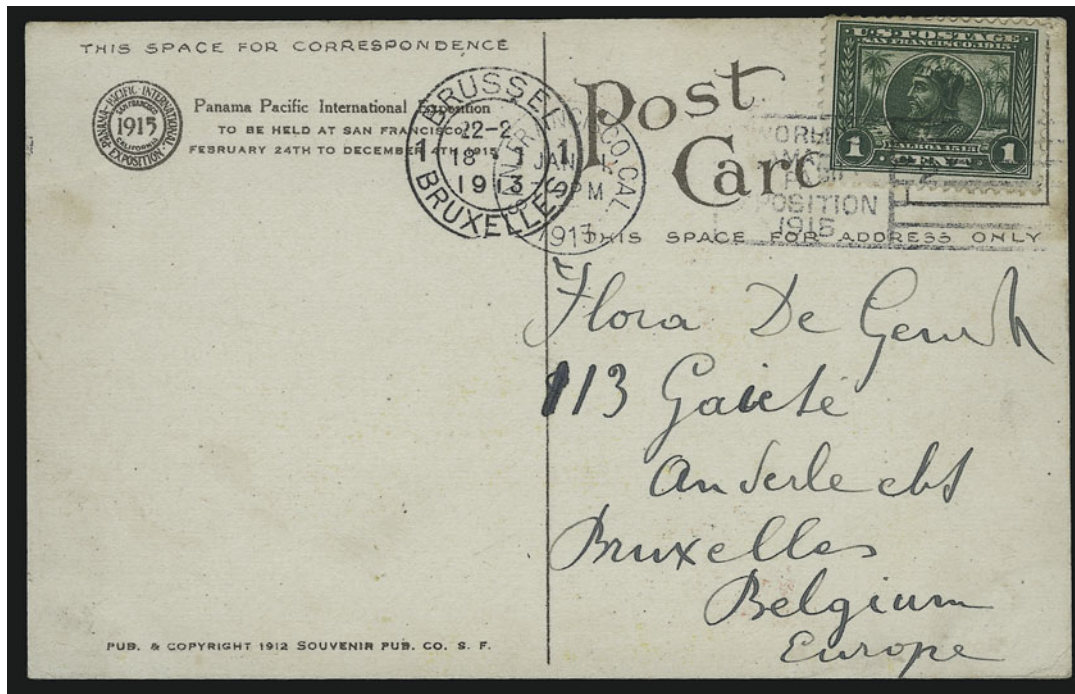 THIS SPACE FOR CORRESPONDENCE
PANAMA-PACIFIC INTERNATIONAL EXPOSITION
SAN FRANCISCO
1915
CALIFORNIA
Panama Pacific International Exposition
TO BE HELD AT SAN FRANCISCO
FEBRUARY 24TH TO DECEMBER 4TH 1915
BRUSSEL
22-2
1 18 1
1913
BRUXELLES
SAN FRANCISCO, CAL.
JAN
PM
1913
Post
Card
WORLD
EXPOSITION
1915
U.S. POSTAGE
SAN FRANCISCO 1915
BALBOA 1513
1 CENT 1
THIS SPACE FOR ADDRESS ONLY
Flora De
113 Gaieté
Anderlecht
Bruxelles
Belgium
Europe
PUB. & COPYRIGHT 1912 SOUVENIR PUB. CO. S. F.